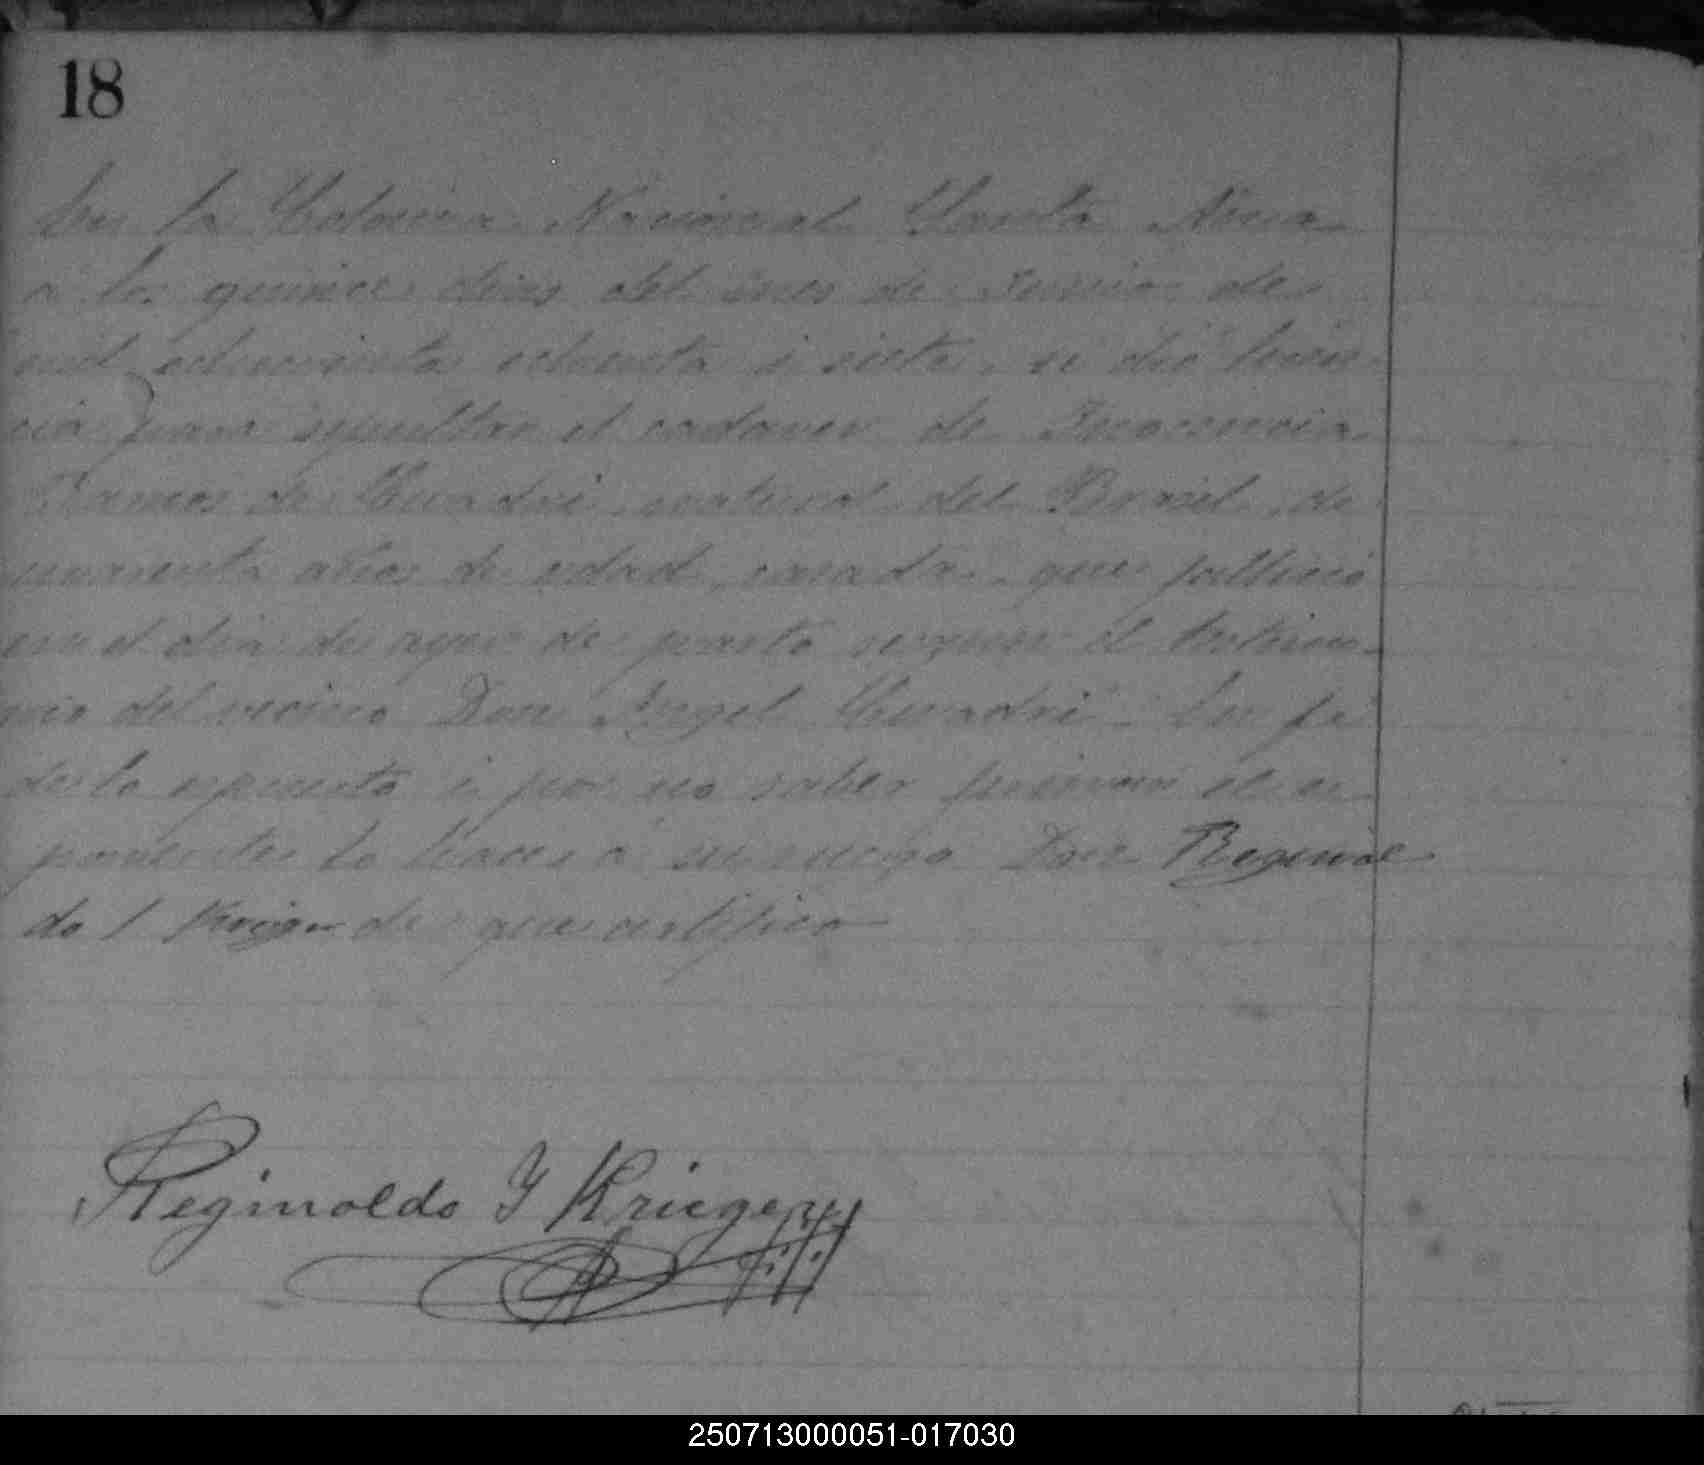 18
En la Colonia Nacional Santa Ana
a los quince dias del mes de Junio de
mil ochocientos ochenta i siete, se dió licen
cia para sepultar el cadaver de Inocencia
Ramos de Cuadri, natural del Brasil, de
cuarenta años de edad, casada, que fallecio
en el dia de ayer de parto segun el testimo
nio del vecino Don Angel Cuadri. En fe
de lo espuesto i por no saber firmar el es
ponente lo hace a su ruego Don Reginal
do Y Krieger de que certifico
Reginaldo Y Krieger
250713000051-017030